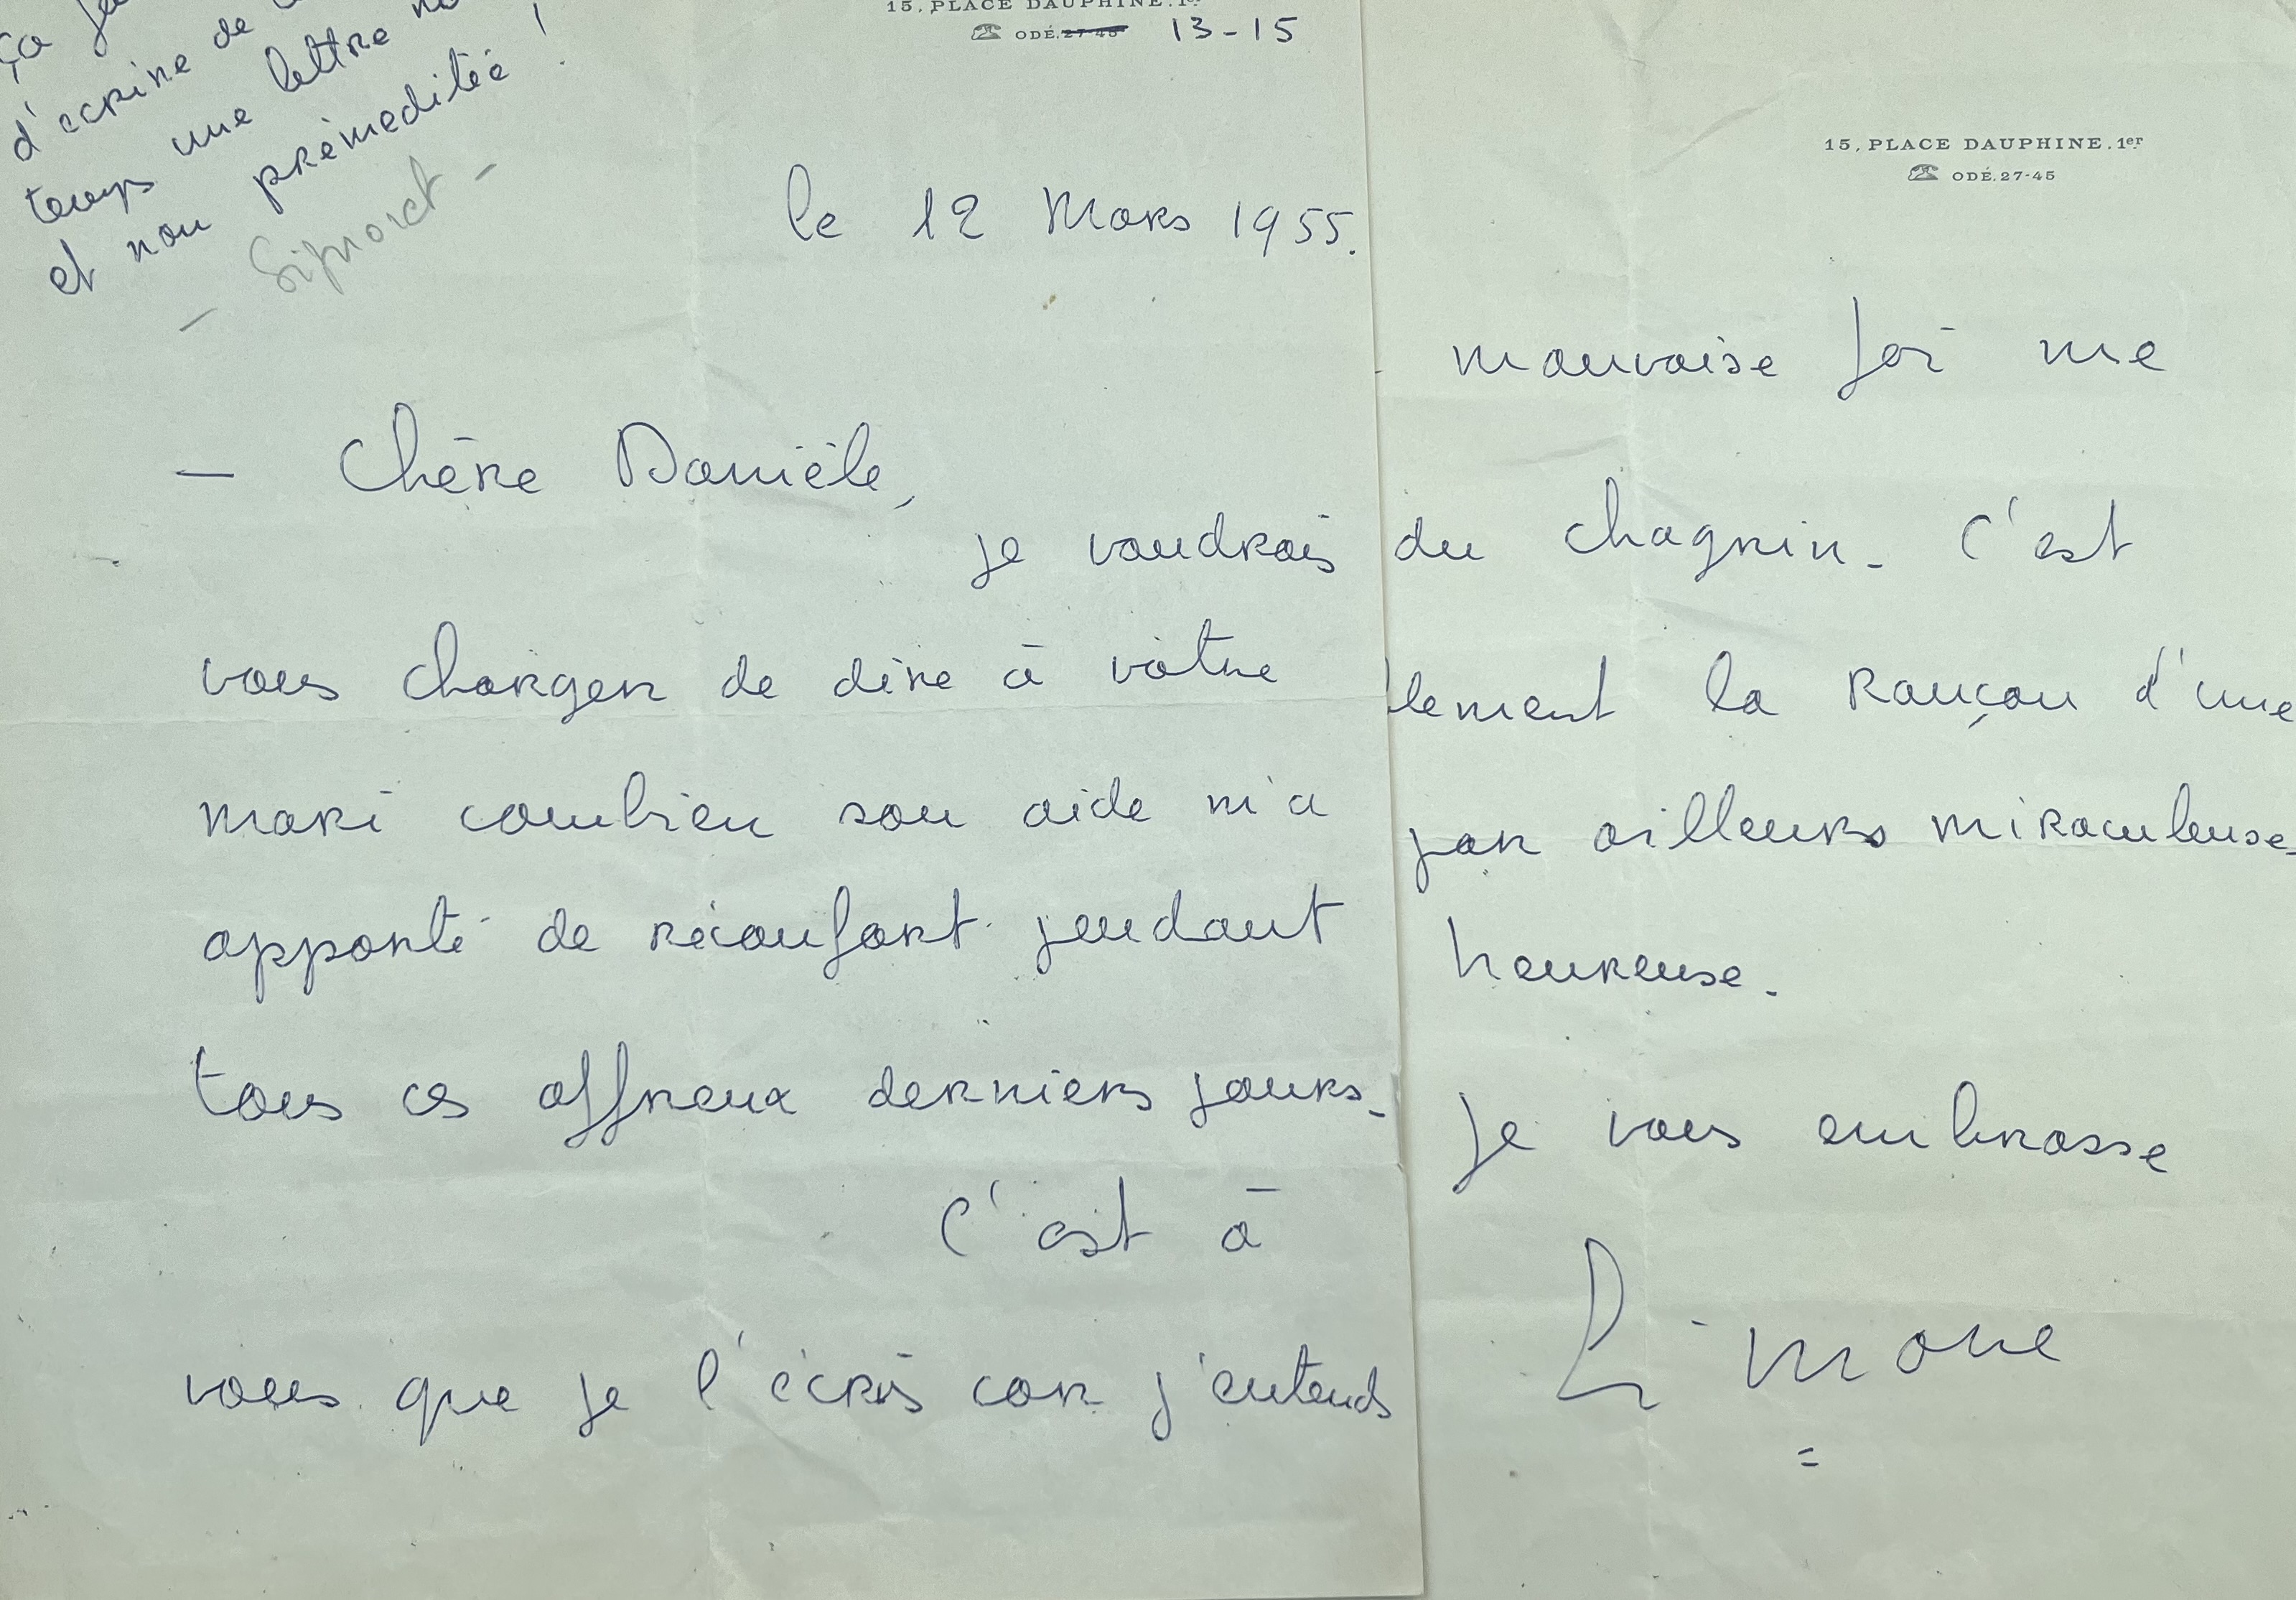 ça
d'ecrire de
temps une lettre
et non prémeditée !
- Signoret -
15, PLACE DAUPHINE. 1er
ODÉ. 27-45 13-15
le 12 Mars 1955.
- Chère Danièle,
je voudrais
vous charger de dire à votre
mari combien son aide m'a
apporté de réconfort pendant
tous ces affreux derniers jours.
C'est à
vous que je l'écris car j'entends
15, PLACE DAUPHINE. 1er
ODÉ. 27-45
mauvaise foi me
du chagrin. C'est
lement la rançon d'une
par ailleurs miraculeuse-
heureuse.
Je vous embrasse
Simone